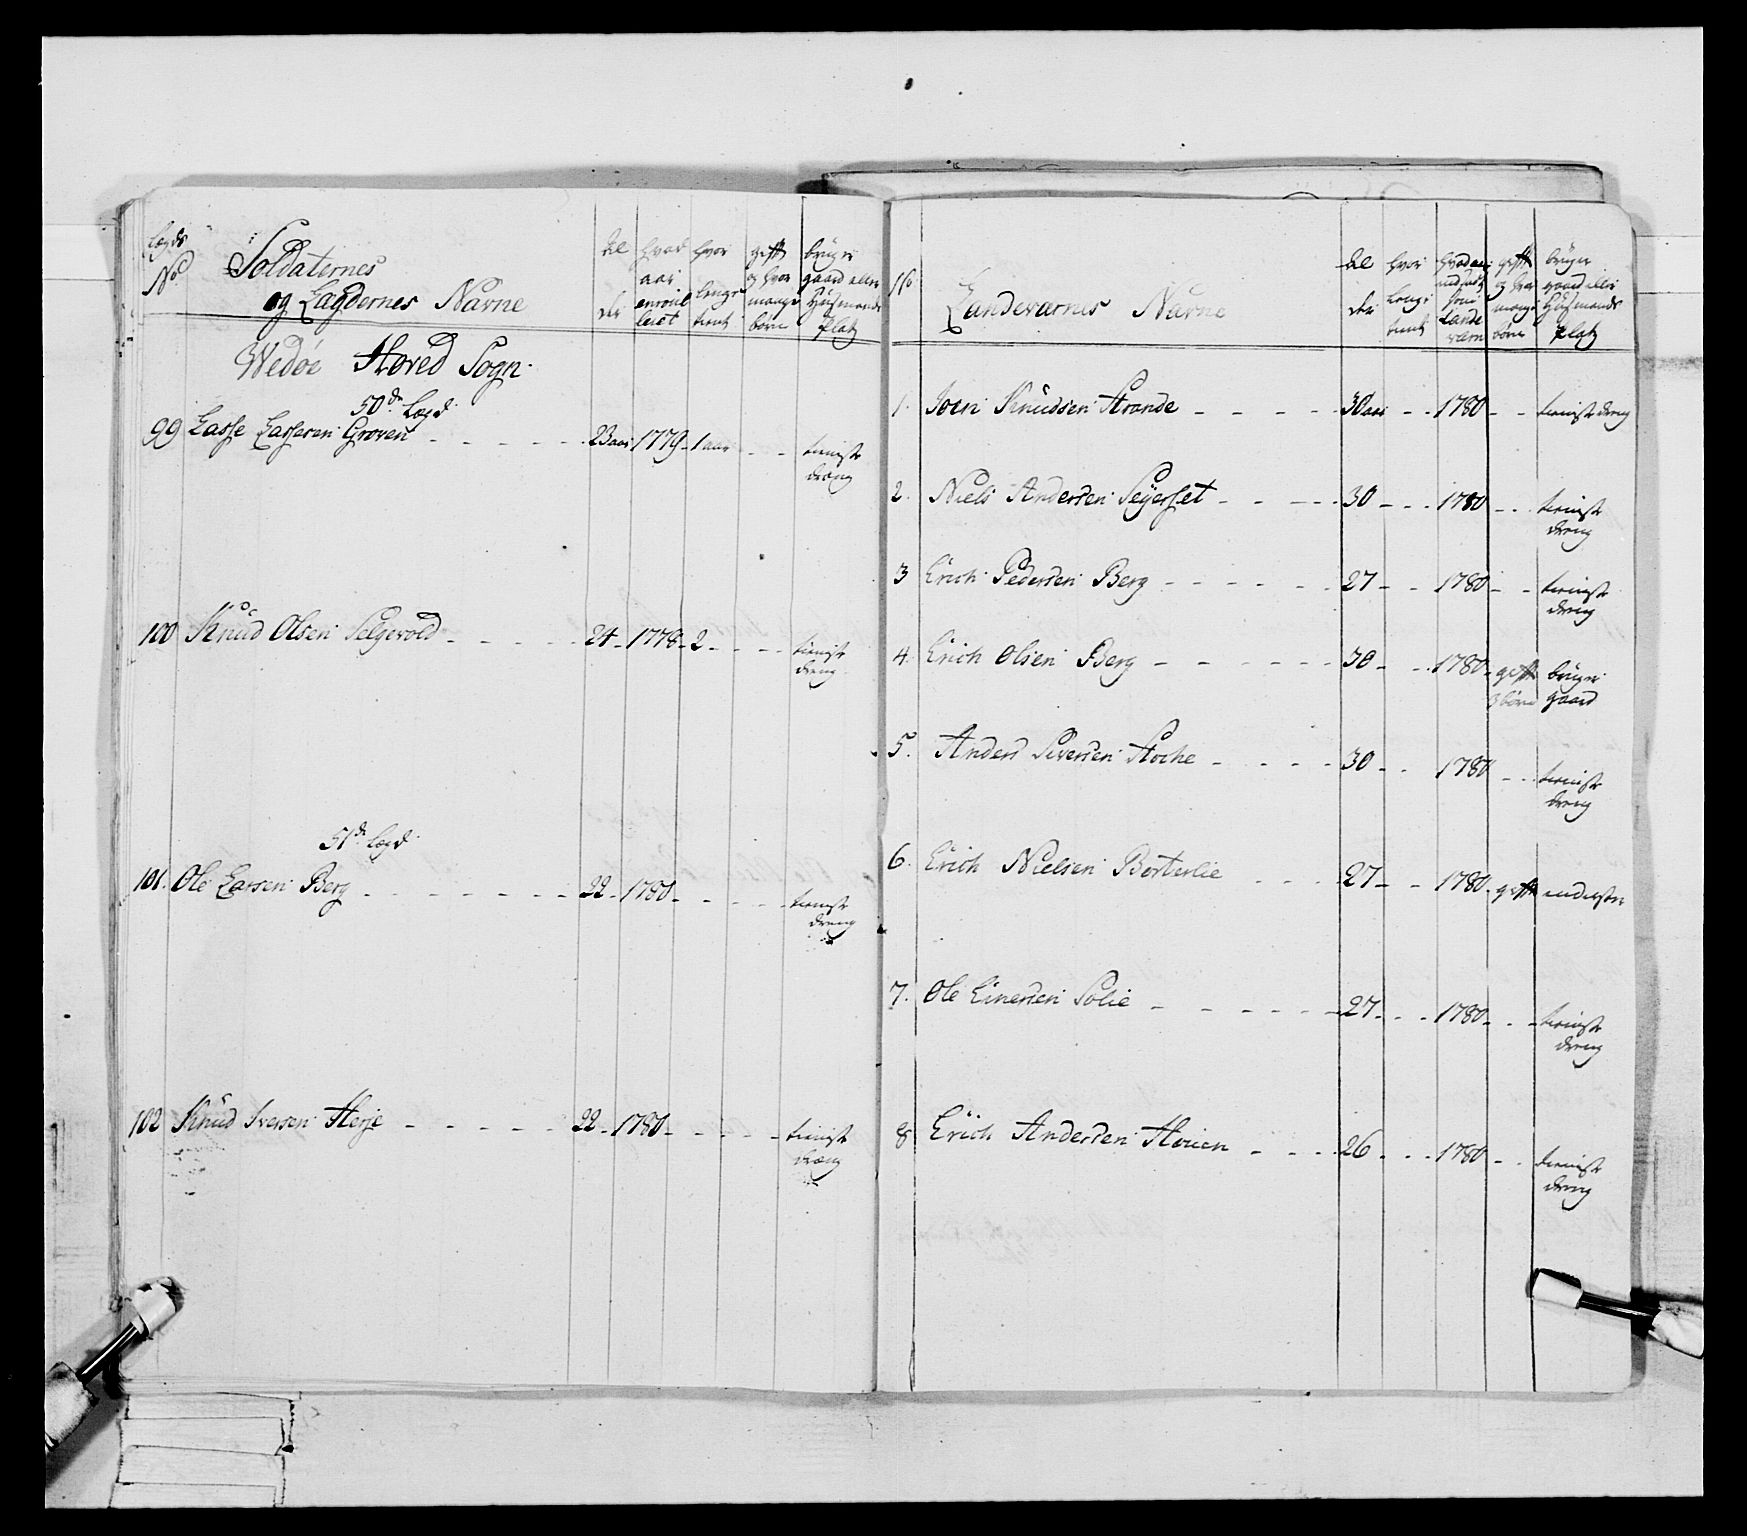 Lægds
No
Soldaternes
og Lægdernes Navne
Al
der
hvad
aar
enroul
leret
hvor
lenge
tient
gift
og hvor
mange
børn
bruger
gaard eller
Huusmands
Platz
Wedøe Hoved Sogn
50de Lægd
99 Lasse Lassesen Groven - - - - - 23 aar 1779 - 1 aar - - tieniste
dræng
100 Knud Olsen Selgevold - - - - - 24 - 1778 - 2 - - - - tieniste
dreng
51de Lægd
101. Ole Larsen Berg - - - - - - - 22 - 1780 - - - - - tieniste
dreng
102 Knud Iversen Herje - - - - - 22 - 1780 - - - - - tieniste
dræng
No
Landeværnes Navne
Al
der
hvor
lenge
tient
hvad aar
udsadt
som
Lande
værn
gift
og hvor
mange
børn
bruger
gaard eller
Huusmands
Platz
1. Joen Knudsen Strande - - - - 30 aar - - 1780 - - tieniste dreng
2. Niels Andersen Seyerset - - - - 30 - - - 1780 - - tieniste
dreng
3 Erich Pedersen Berg - - - - - - 27 - - 1780 - - tieniste
dreng
4. Erich Olsen Berg - - - - - - 30 - - 1780 - gift bruger
3 børn gaard
5. Anders Siversen Stoche - - - - 30 - - 1780 - - tieniste
dreng
6. Erich Nielsen Bosterlie - - - 27 - - 1780 - gift inderster
7. Ole Einersen Solie - - - - - - 27 - - - 1780 - - - tieniste
dreng
8 Erich Andersen Hovien - - - 26 - - - 1780 - - tieniste
dreng